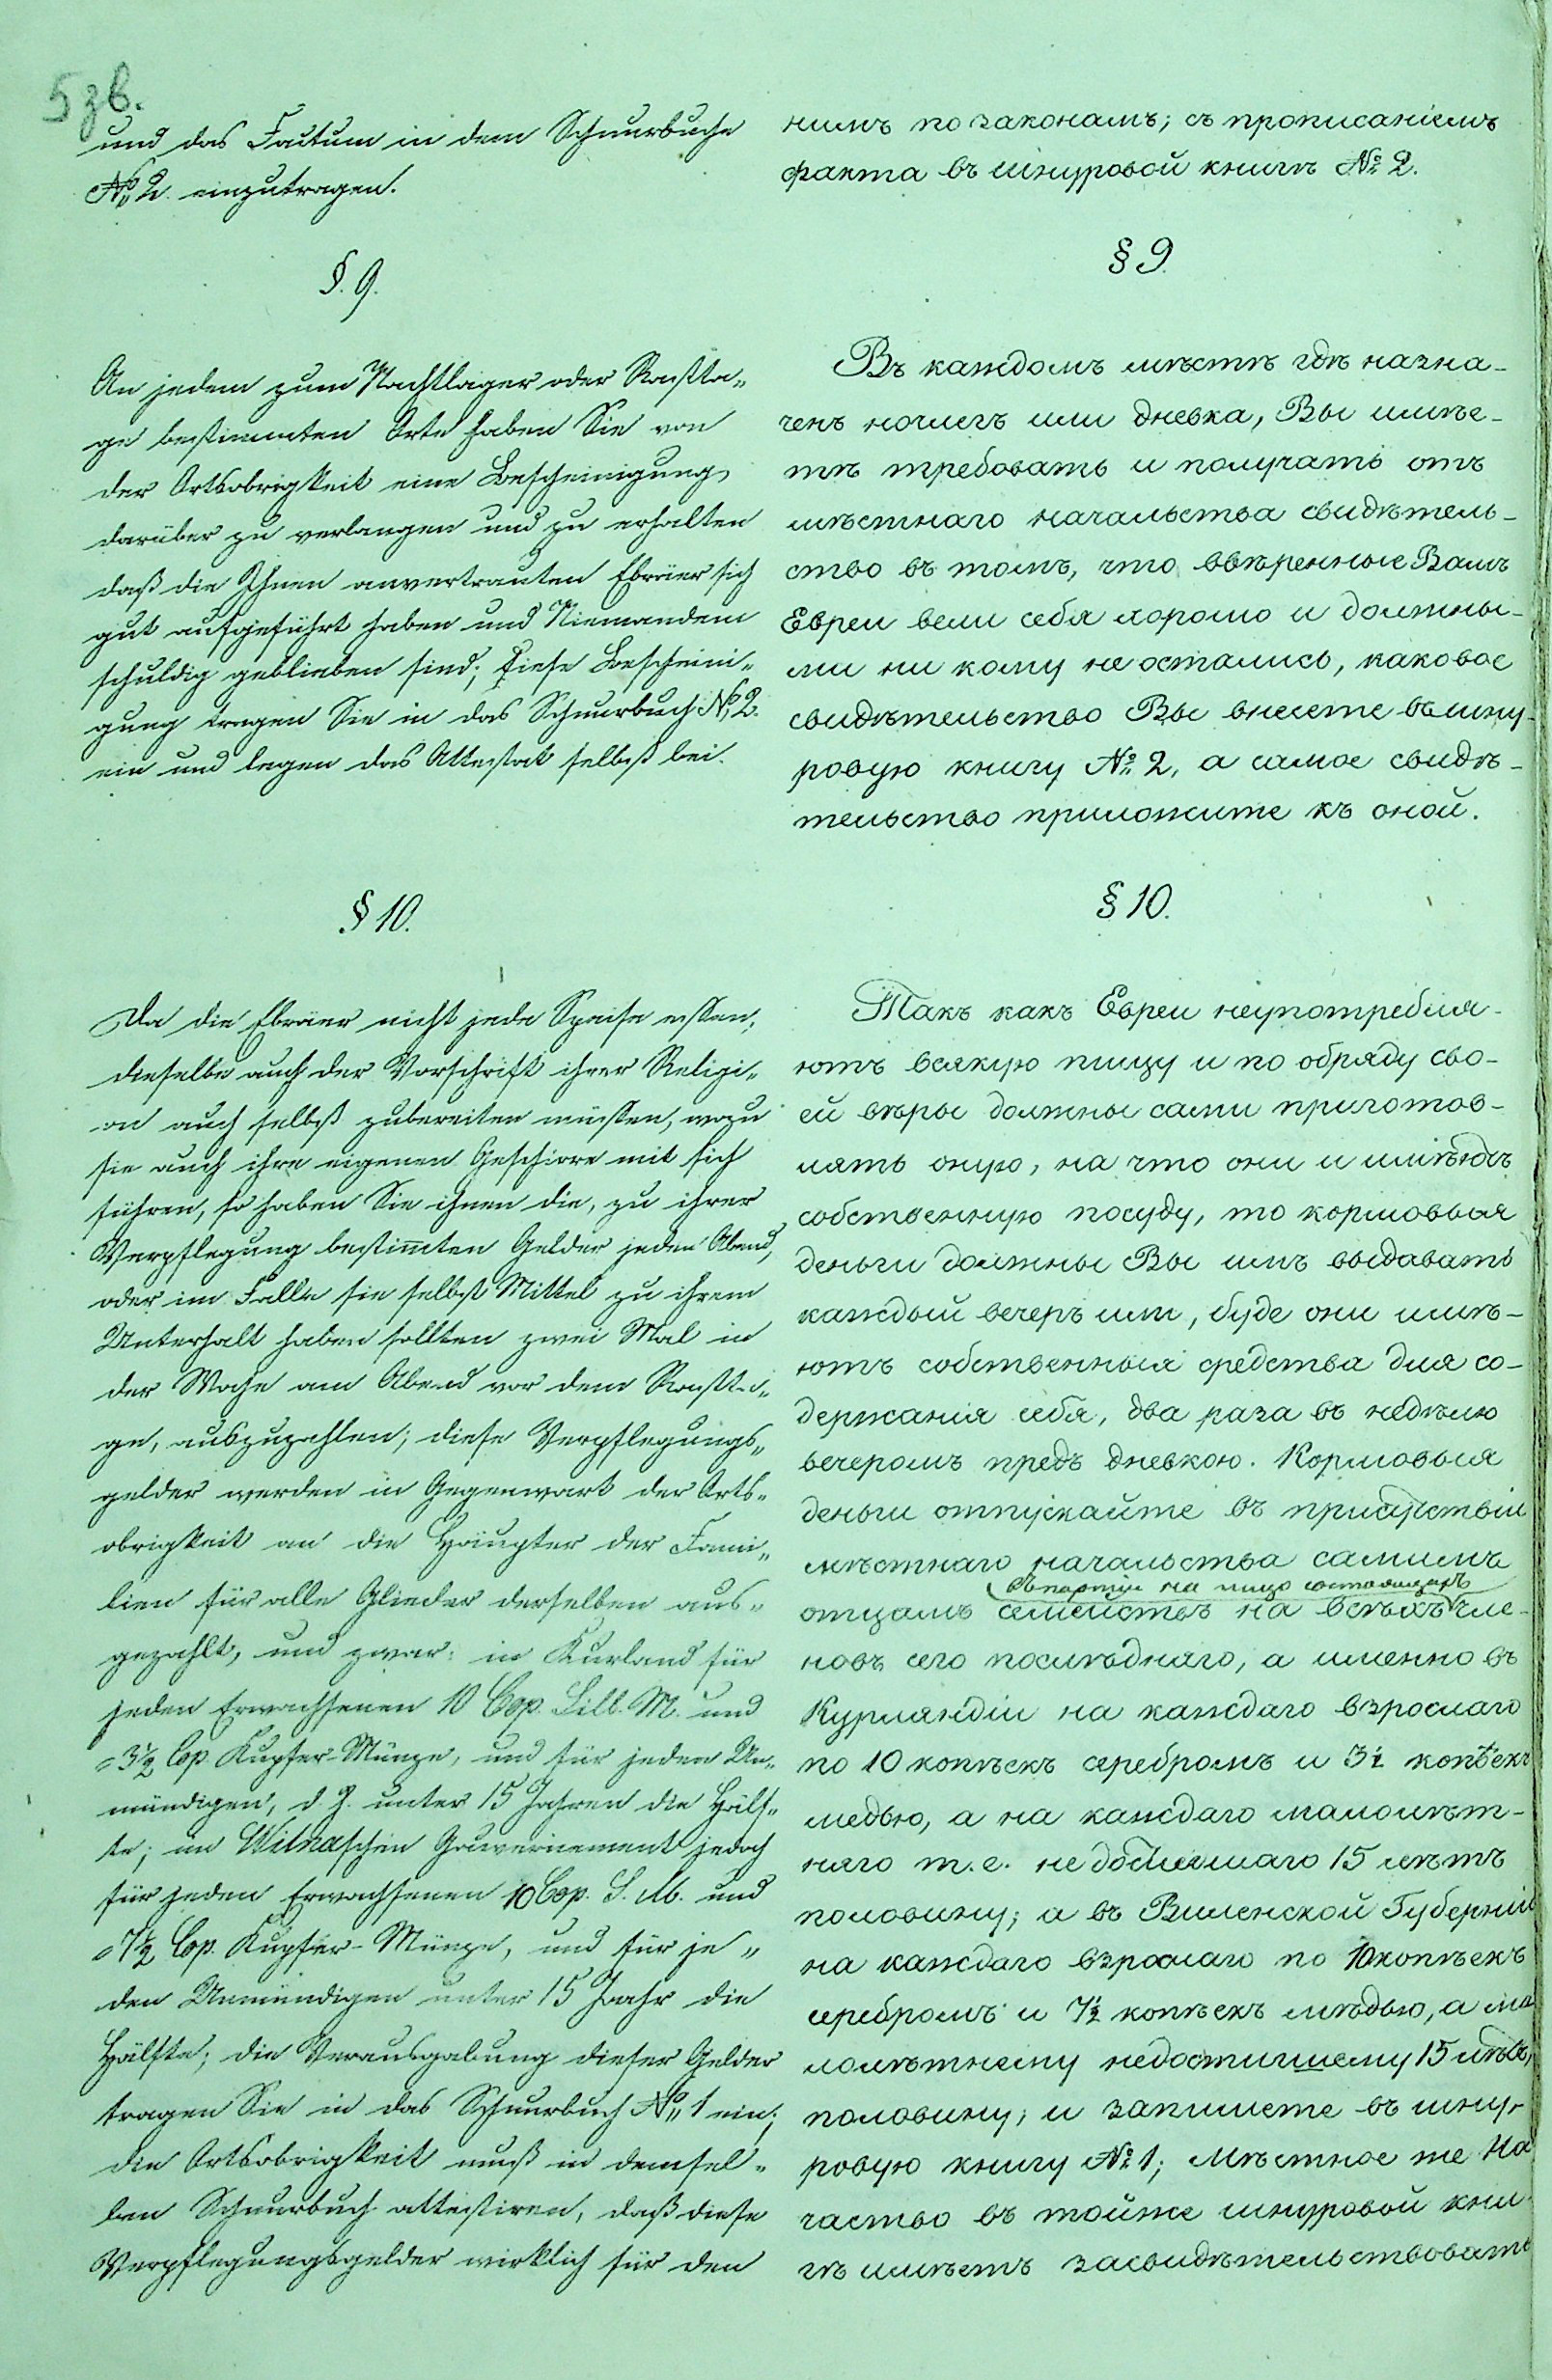 5 zb.
und das Factum in dem Schnurbuche
№ 2. einzutragen.
§. 9.
An jedem zum Nachtlager oder Rastta„
ge bestimmten Orte haben Sie von
der Ortsobrigkeit eine Bescheinigung
darüber zu verlangen und zu erhalten
daß die Ihnen anvertrauten Ebräer sich
gut aufgeführt haben und Niemandem
schuldig geblieben sind; diese Bescheini„
gung tragen Sie in das Schnurbuch № 2.
ein und legen das Attestat selbst bei.
§ 10.
Da die Ebräer nicht jede Speise essen,
dieselbe auch der Vorschrift ihrer Religi„
on auch selbst zubereiten müssen, wozu
sie auch ihre eigenen Geschirre mit sich
führen, so haben Sie ihnen die, zu ihrer
Verpflegung bestimten Gelder jeden Abend,
oder im Falle sie selbst Mittel zu ihrem
Unterhalt haben sollten zwei Mal in
der Woche am Abend vor dem Rastta„
ge, auszuzahlen; diese Verpflegungs„
gelder werden in Gegenwart der Orts„
obrigkeit an die Häupter der Fami„
lien für alle Glieder derselben aus„
gezahlt, und zwar: in Kurland für
jeden Erwachsenen 10 Cop. Silb. M. und
3½ Cop Kupfer-Münze, und für jeden Un„
mündigen, d. h. unter 15 Jahren die Hälf„
te; im Wilnaschen Gouvernement jedoch
für jeden Erwachsenen 10 Cop. S. M. und
7½ Cop. Kupfer-Münze, und für je„
den Unmündigen unter 15 Jahr die
Hälfte; die Verausgabung dieser Gelder
tragen Sie in das Schnurbuch № 1 ein;
die Ortsobrigkeit muß in demsel„
ben Schnurbuch attestiren, daß diese
Verpflegungsgelder wirklich für den
нимъ по законамъ; съ прописаніемъ
факта въ шнуровой книгѣ № 2.
§ 9.
Въ каждомъ мѣстѣ гдѣ назна-
ченъ ночлегъ или дневка, Вы имѣе-
тѣ требовать и получать отъ
мѣстнаго начальства свидѣтель-
ство въ томъ, что ввѣренные Вамъ
Евреи вели себя хорошо и должны-
ми ни кому не остались, каковое
свидѣтельство Вы внесете въ шну-
ровую книгу № 2, а самое свидѣ-
тельство приложите къ оной.
§ 10.
Такъ какъ Евреи неупотребля-
ютъ всякую пищу и по обряду сво-
ей вѣры должны сами приготов-
лять оную, на что они и имѣютъ
собственную посуду, то кормовыя
деньги должны Вы имъ выдавать
каждый вечеръ или, буде они имѣ-
ютъ собственныя средства для со-
держанія себя, два раза въ недѣлю
вечеромъ предъ дневкою. Кормовыя
деньги отпускайте въ присутствіи
мѣстнаго начальства самимъ
въ партіи на лицо состоящихъ
отцамъ семействъ на всѣхъ чле-
новъ сего послѣдняго, а именно въ
Курляндіи на каждаго взрослаго
по 10 копѣекъ серебромъ и 3½ копѣекъ
медью, а на каждаго малолѣт-
няго т. е. не достигшаго 15 лѣтъ
половину; а въ Виленской Губерніи
на каждаго взрослаго по 10 копѣекъ
серебромъ и 7½ копѣекъ мѣдью, а ма
лолѣтнему недостигшему 15 лѣтъ,
половину; и запишете въ шну-
ровую книгу № 1; Мѣстное же На
частво въ тойже шнуровой кни-
гѣ имѣетъ засвидѣтельствовать